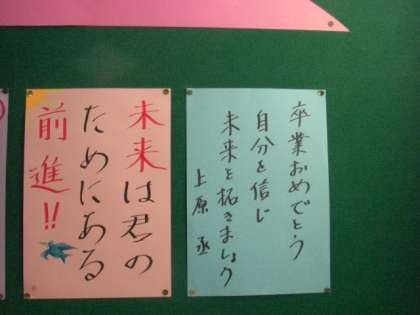 卒業おめでとう
自分を信じ
未来を拓きましょう
上原 丞
未来は君の
ためにある
前進!!